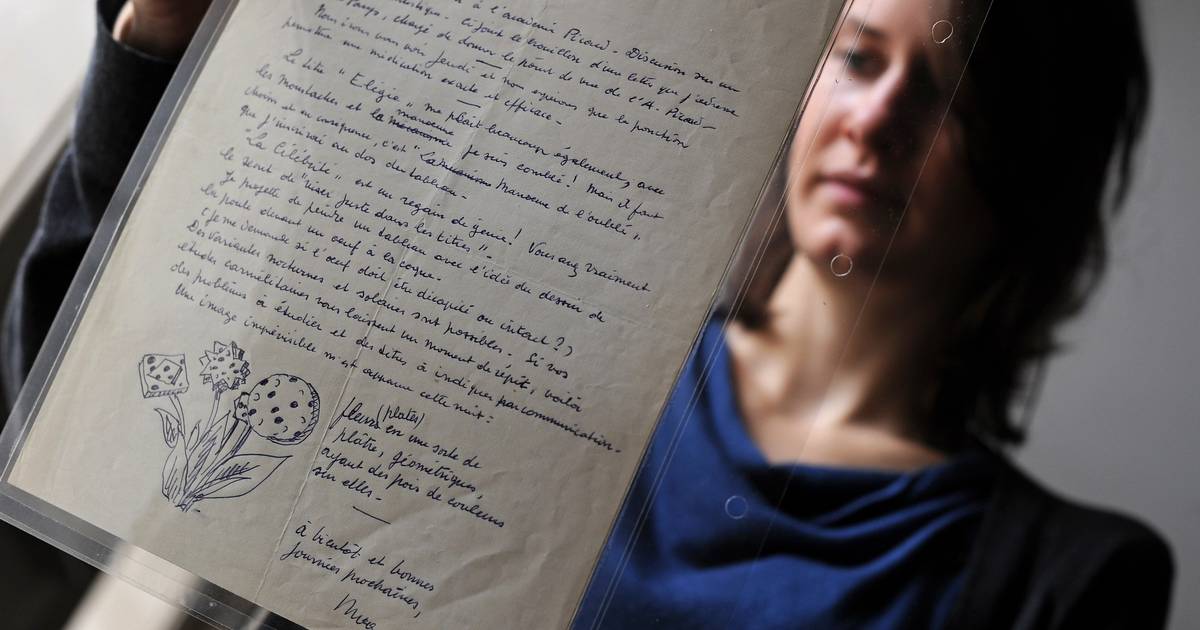 à l'académie Picard - Discussion sur un
Ci-joint le brouillon d'une lettre que j'adresse
chargé de donner le point de vue de l'A. Picard -
Nous irons vous voir jeudi et nous espérons que la ponction
permettra une médication exacte et efficace -
Le titre "Elégie" me plaît beaucoup également, avec
les Moustaches et la manoeuvre je suis comblé ! Mais il faut
choisir et en conséquence, c'est "La Manoeuvre de l'oublié",
que j'inscrirai au dos du tableau -
"La Célébrité" est un regain de génie ! Vous avez vraiment
le secret de "viser juste dans les titres" -
Je projette de peindre un tableau avec l'idée du dessin de
la poule devant un oeuf à la coque -
(Je me demande si l'oeuf doit être décapité ou intact ?)
Des variantes nocturnes et solaires sont possibles - Si vos
études carmélitaines vous laissent un moment de répit, voilà
des problèmes à étudier et des titres à indiquer par communication -
Une image imprévisible m'est apparue cette nuit :
fleurs (plates)
en une sorte de
plâtre, géométriques,
ayant des pois de couleurs
sur elles -
à bientôt et bonnes
journées prochaines,